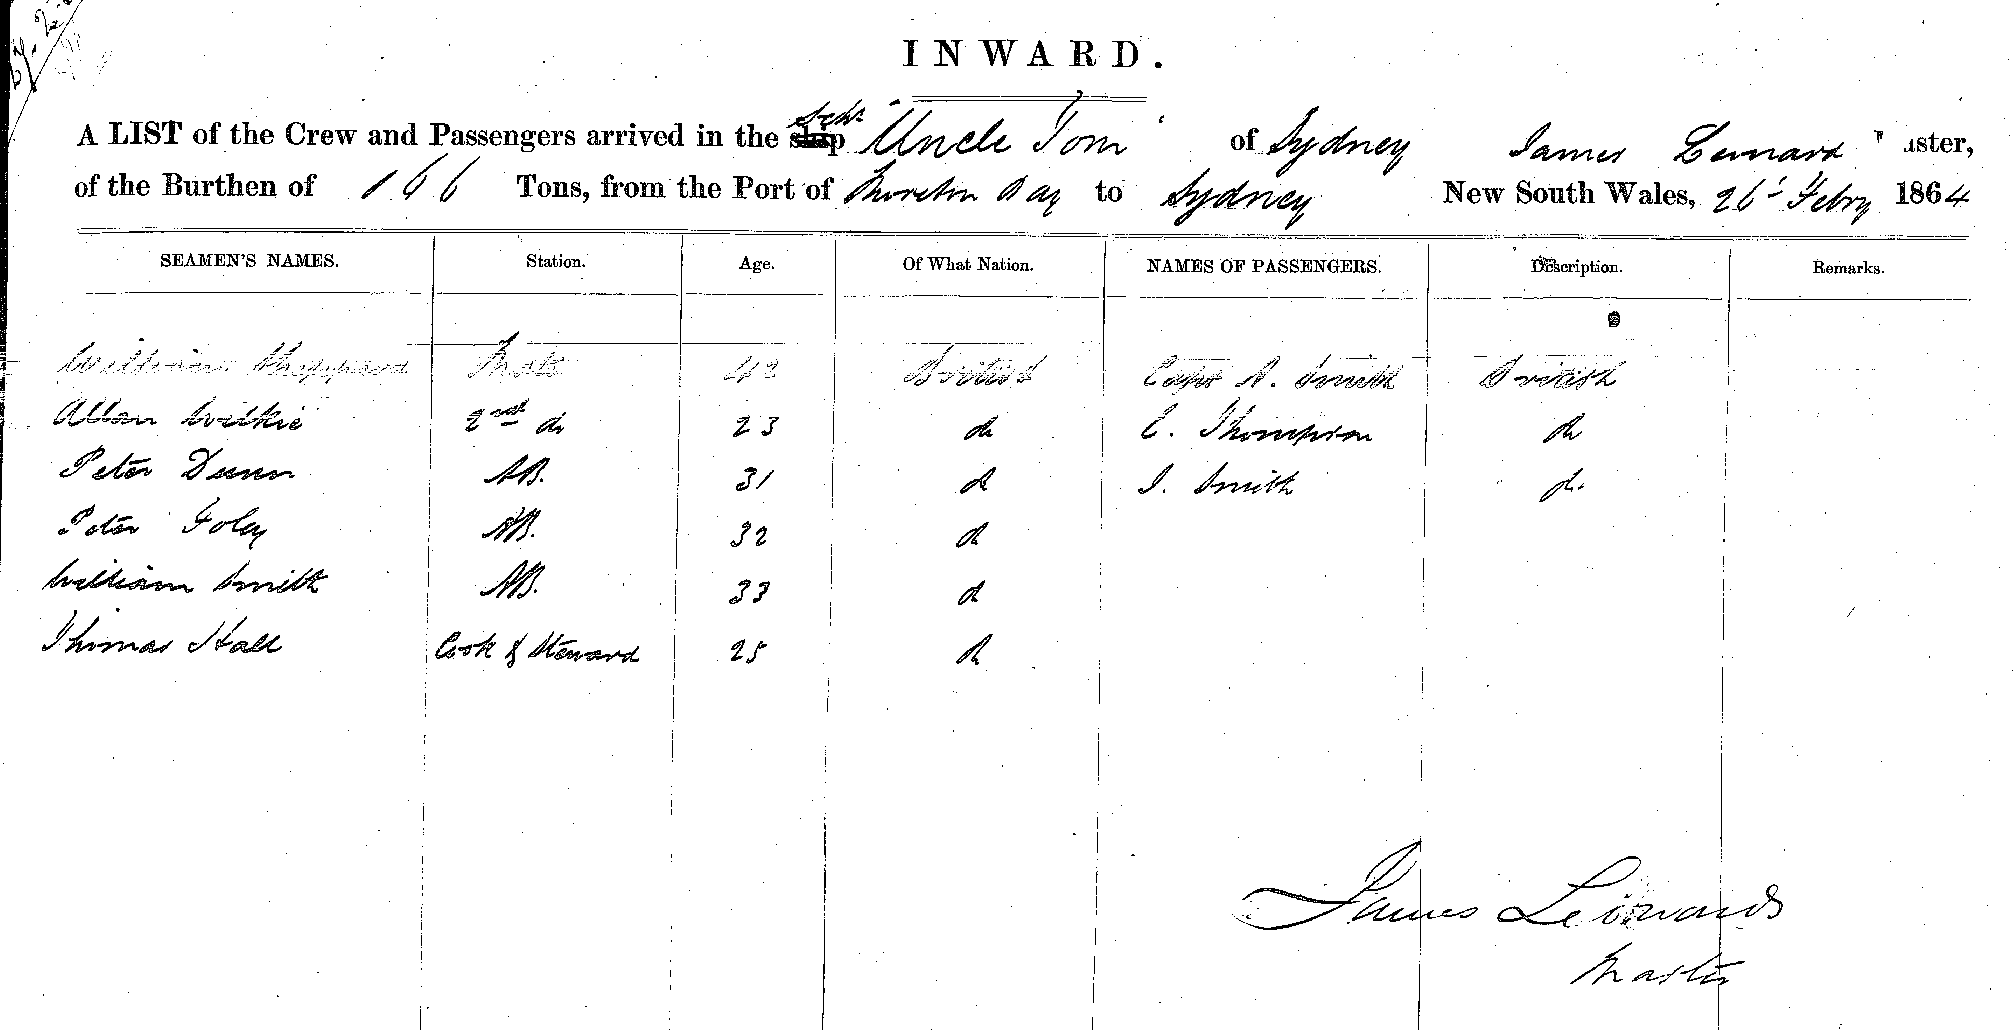 INWARD.
A LIST of the Crew and Passengers arrived in the ship Schr "Uncle Tom" of Sydney James Leonard Master,
of the Burthen of 166 Tons, from the Port of Moreton Bay to Sydney New South Wales, 26t Febry 1864
SEAMEN'S NAMES. Station. Age. Of What Nation. NAMES OF PASSENGERS. Description. Remarks.
William Sheppard Mate 42 British Capt A. Smith British
Allan Wilkie 2nd do 23 do C. Thompson do
Peter Dunn AB. 31 do J. Smith do
Peter Foley AB. 32 do
William Smith AB. 33 do
Thomas Hall Cook & Steward 25 do
James Leonard
Master